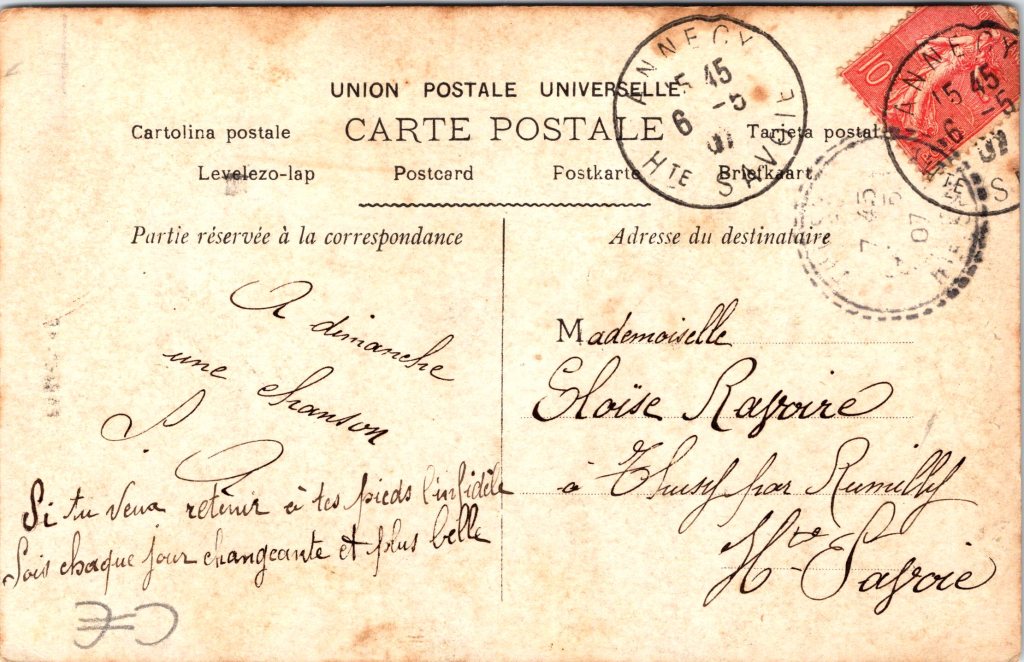 UNION POSTALE UNIVERSELLE
CARTE POSTALE
Cartolina postale
Tarjeta postal
Levelezo-lap
Postcard
Postkarte
Briefkaart
ANNECY
15 45
6 -5
07
HTE SAVOIE
10
ANNECY
15 45
6 -5
07
HTE S
7 45
5
07
Partie réservée à la correspondance
Adresse du destinataire
A dimanche
une chanson
Si tu veux retenir à tes pieds l'infidèle
Sois chaque jour changeante et plus belle
Mademoiselle
Eloïse Ravoire
à Thusy par Rumilly
Hte Savoie